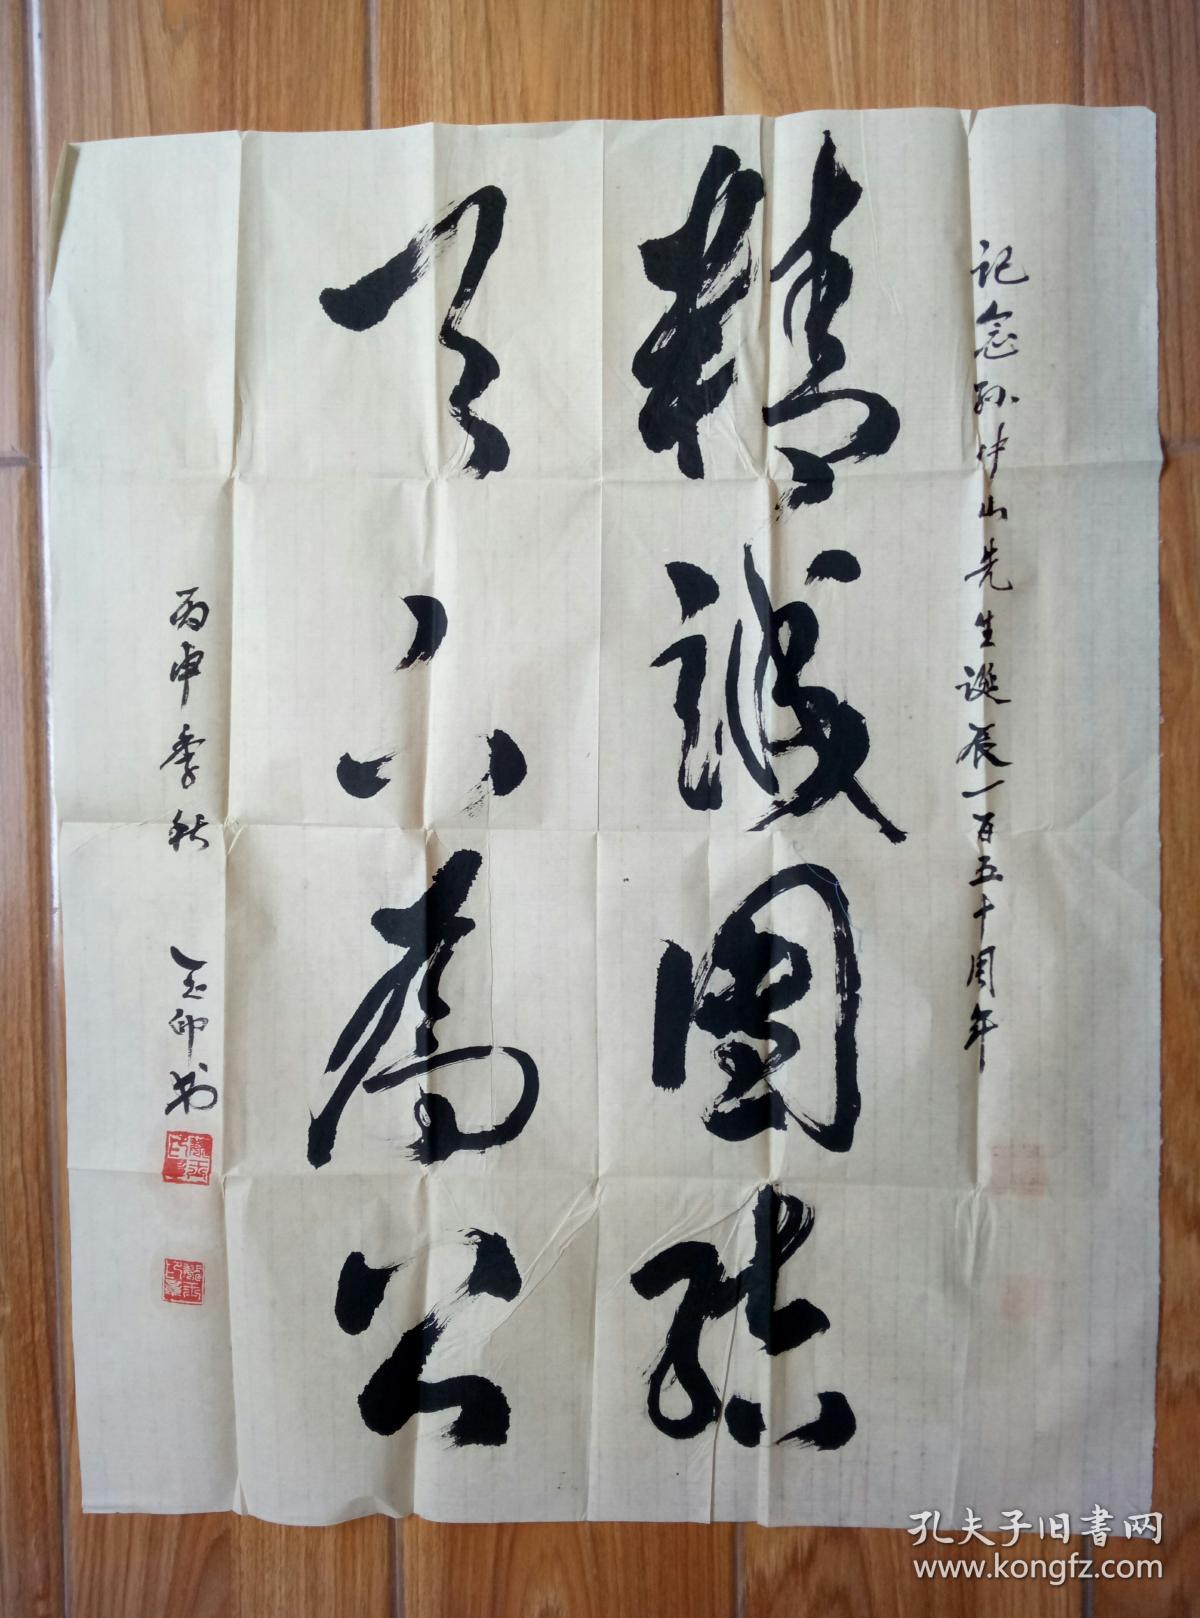 记念孙中山先生诞辰一百五十周年
精诚团结
天下为公
丙申季秋 玉印书
孔夫子旧書网
www.kongfz.com